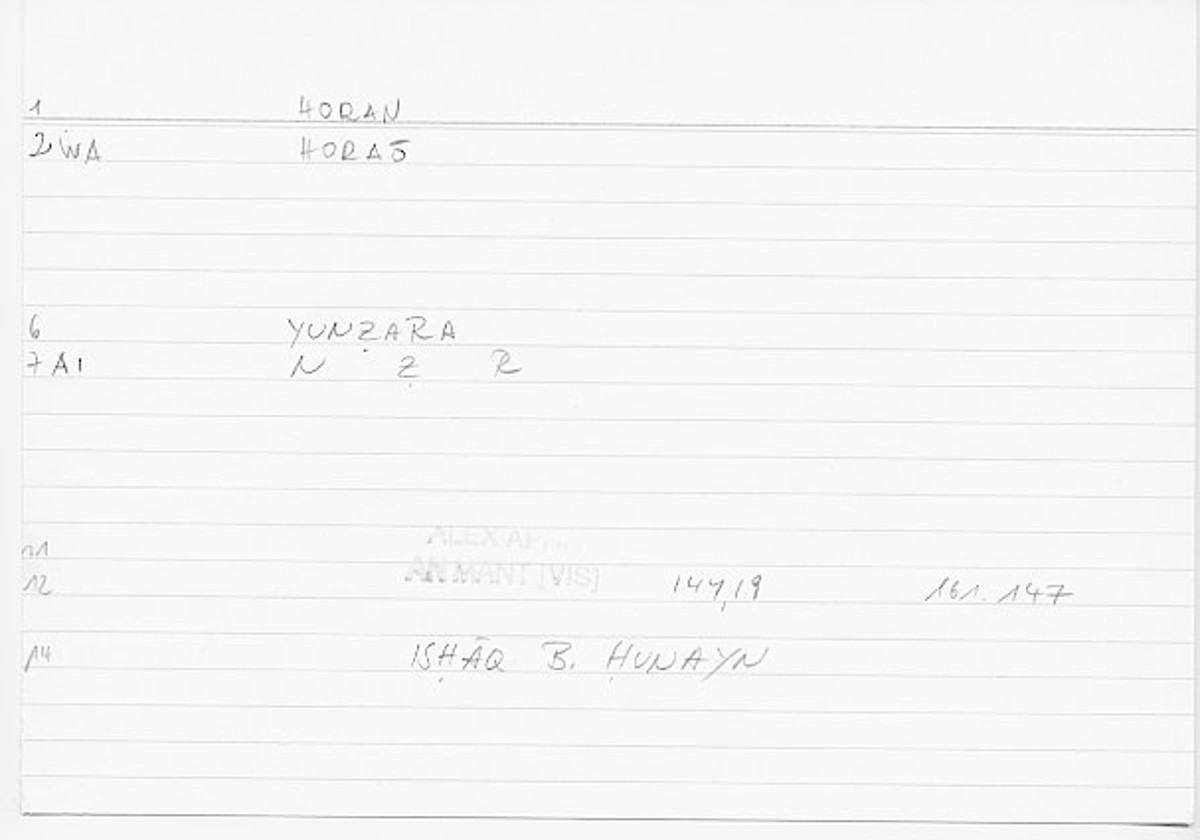 1 HORAN
2 WA HORAŌ
6 YUNẒARA
7 A1 N Ẓ R
11 ALEX
12 AN MANT [VIS] 144,19 161.147
14 ISḤĀQ B. ḤUNAYN